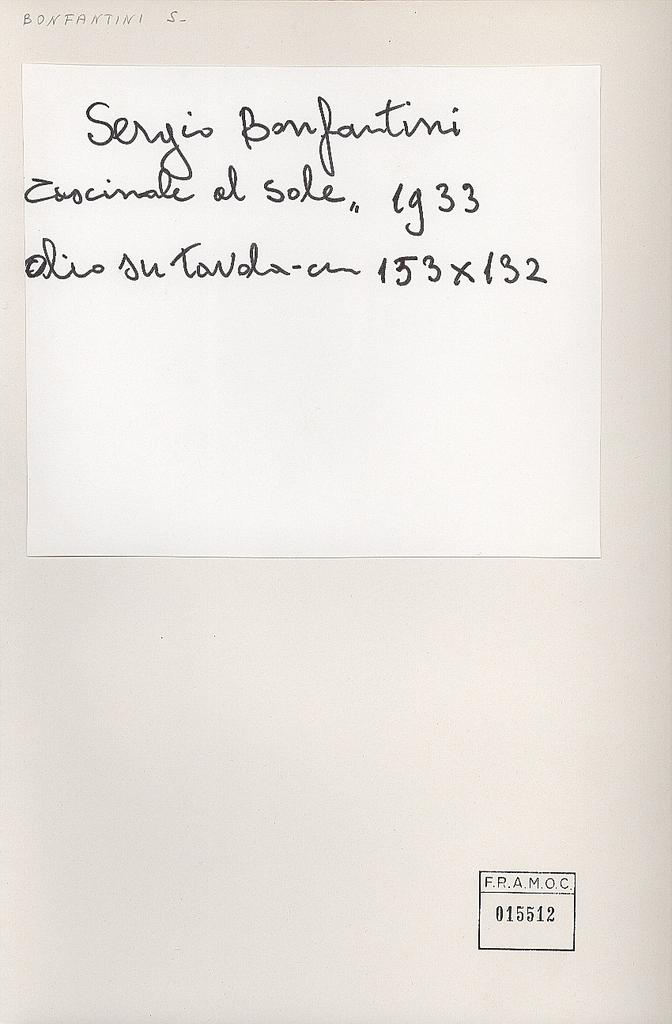 BONFANTINI S-
Sergio Bonfantini
Cascinale al sole„ 1933
olio su tavola-cm 153x132
F.R.A.M.O.C.
015512